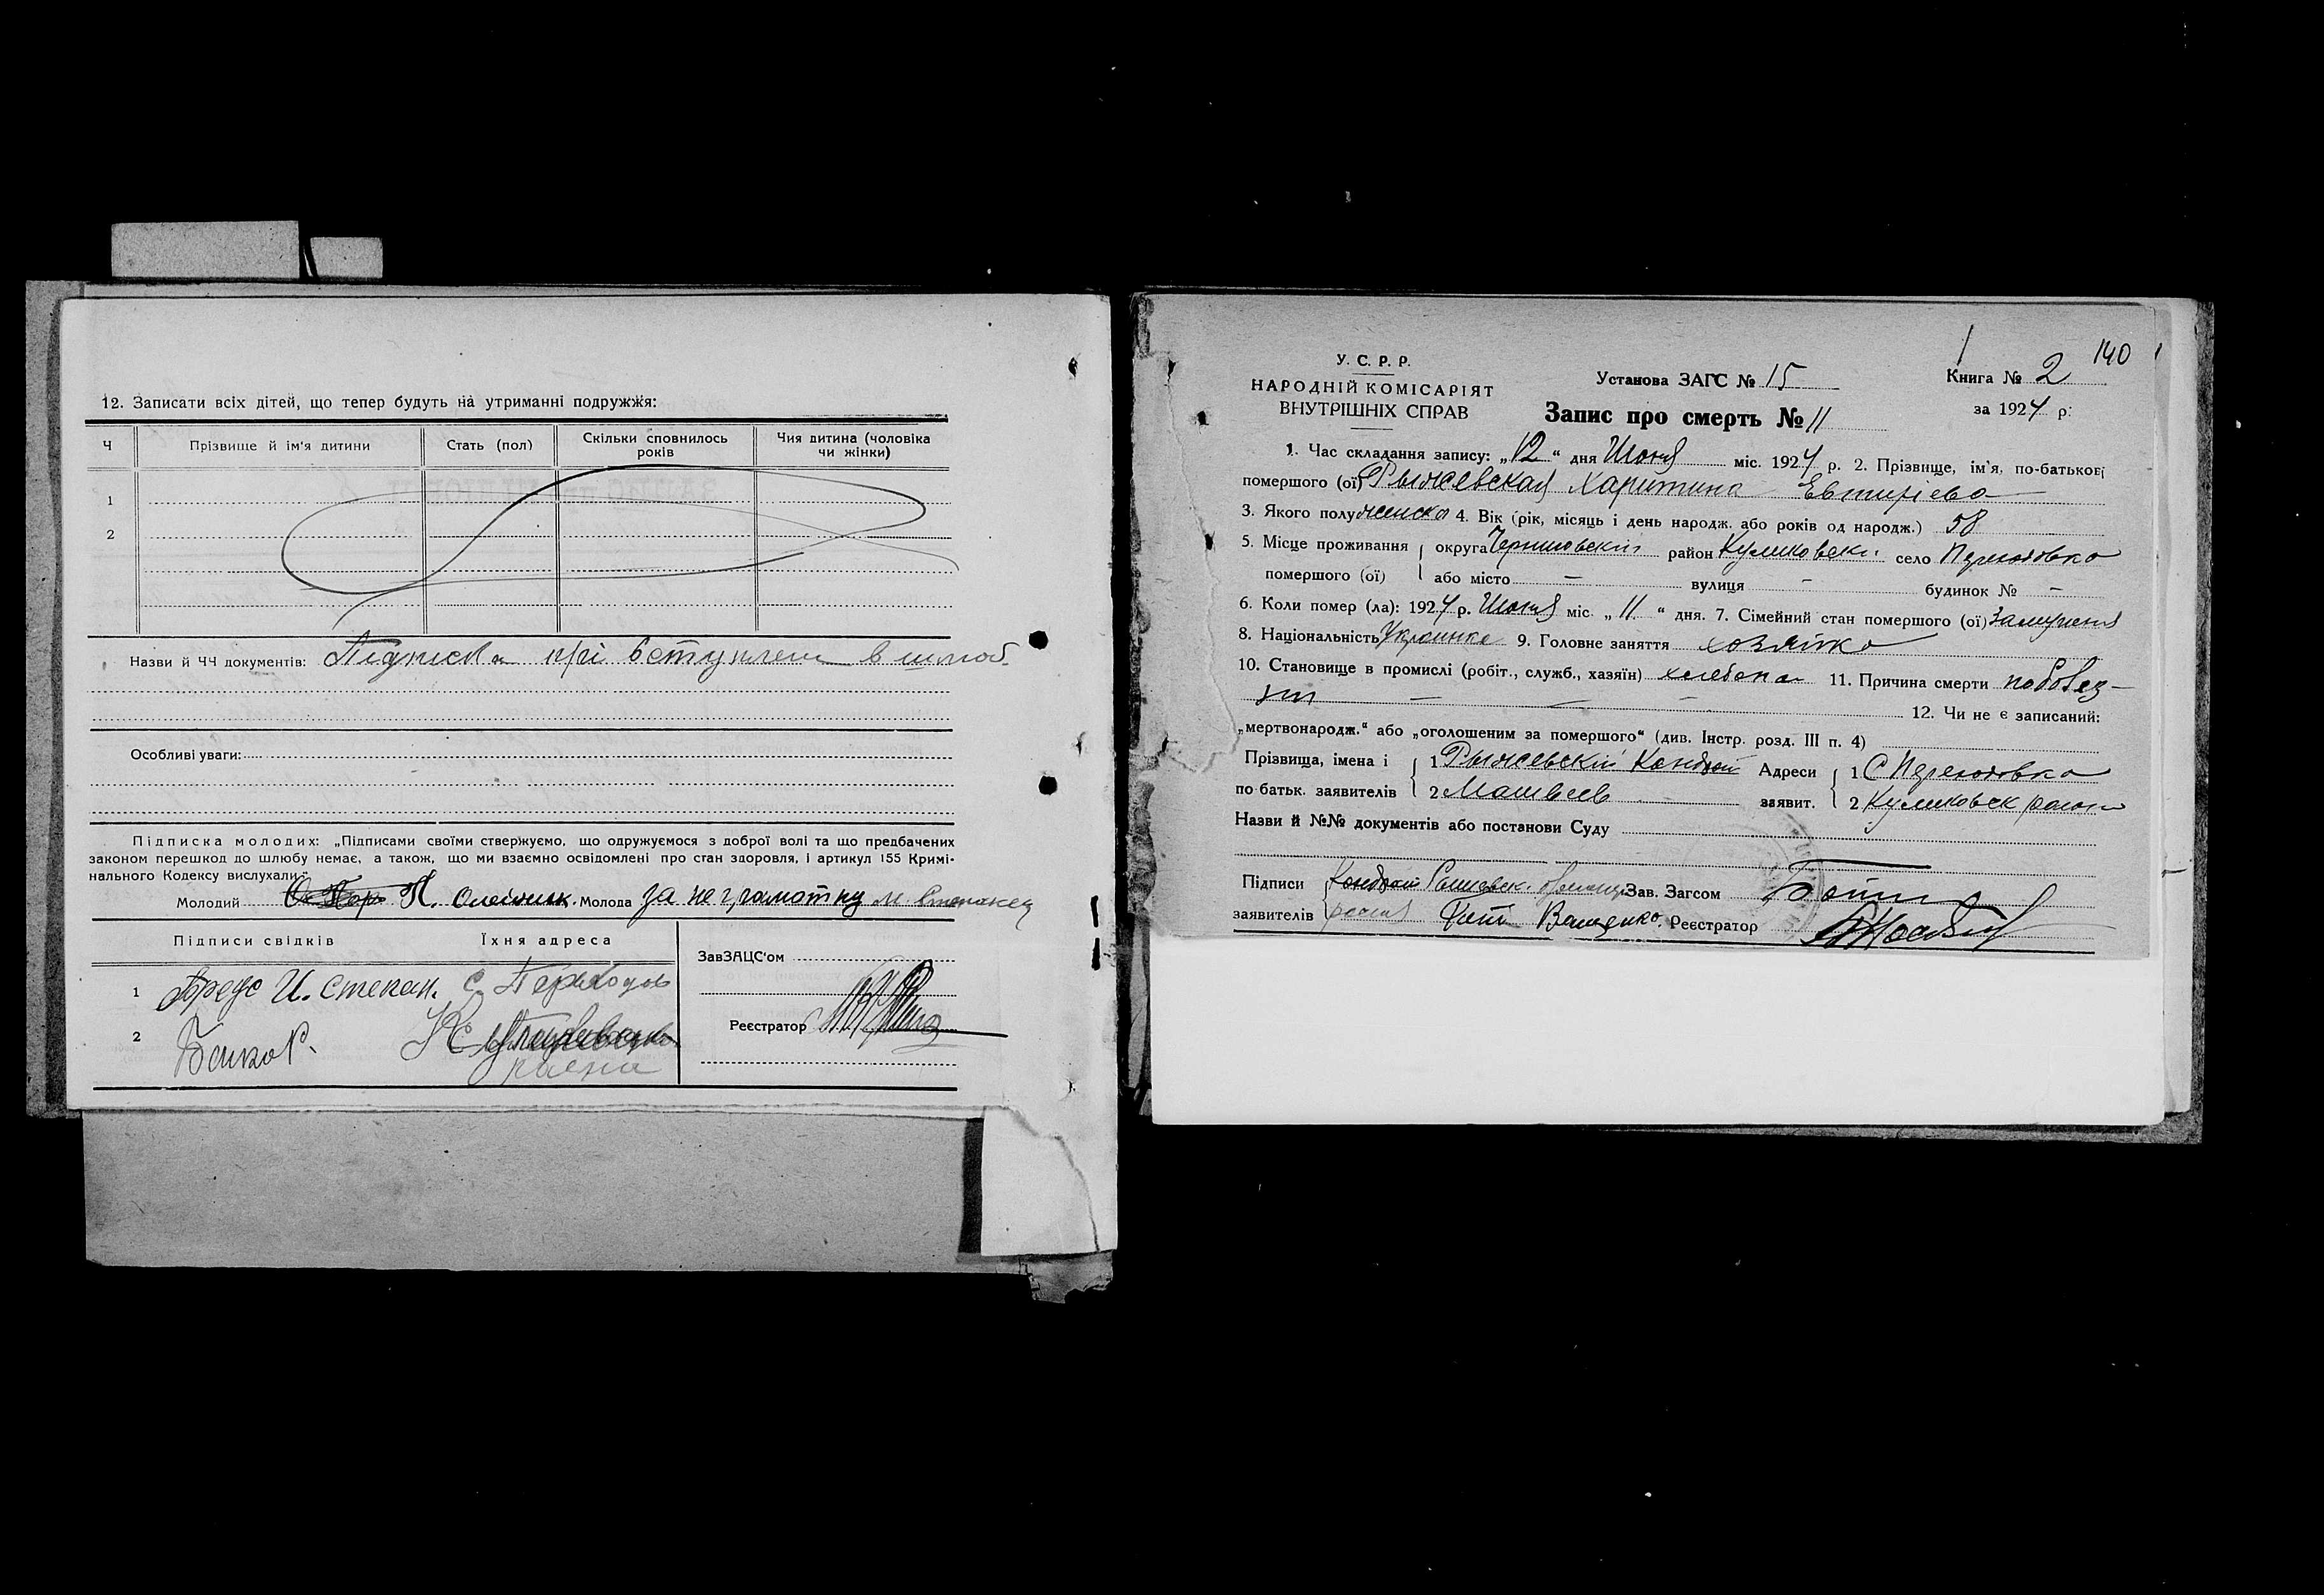 12. Записати всіх дітей, що тепер будуть на утриманні подружжя:
Ч Прізвище й ім'я дитини Стать (пол) Скільки сповнилось років Чия дитина (чоловіка чи жінки)
1
2
Назви й ЧЧ документів: Підписка при
Особливі уваги:
Підписка молодих: „Підписами своїми стверджуємо, що одружуємося з доброї волі та що предбачених
законом перешкод до шлюбу немає, а також, що ми взаємно освідомлені про стан здоров'я, і артикул 155 Кримі-
нального Кодексу вислухали:"
Молодий П. Олейник Молода за неграмотну
Підписи свідків Їхня адреса
ЗавЗАЦС'ом
1 И. Степан. с.
2
Реєстратор
140
У. С. Р. Р.
НАРОДНІЙ КОМІСАРІЯТ
ВНУТРІШНІХ СПРАВ
Установа ЗАГС № 15
Книга № 2
Запис про смерть № 11
за 1924 р.
1. Час складання запису: „12“ дня Июня міс. 1924 р. 2. Прізвище, ім'я, по-батькові
помершого (ої) Рыжевская Харитина Евтифіева
3. Якого полу женско 4. Вік (рік, місяць і день народж. або років од народж.) 58
5. Місце проживання округа Черниговскій район Куликовски село
помершого (ої) або місто — вулиця — будинок № —
6. Коли помер (ла): 1924 р. Июня міс. „11“ дня. 7. Сімейний стан помершого (ої) Замужняя
8. Національність Украинка 9. Головне заняття хозяйка
10. Становище в промислі (робіт., служб., хазяїн) 11. Причина смерти
12. Чи не є записаний:
„мертвонародж.“ або „оголошеним за помершого“ (див. Інстр. розд. III п. 4)
Прізвища, імена і 1 Рыжевскій Кондрат Адреси 1 С
по батьк. заявителів 2 Матвеев заявит. 2 Куликовск района
Назви й №№ документів або постанови Суду
Підписи Кондрат Зав. Загсом
заявителів Ващенко. Реєстратор